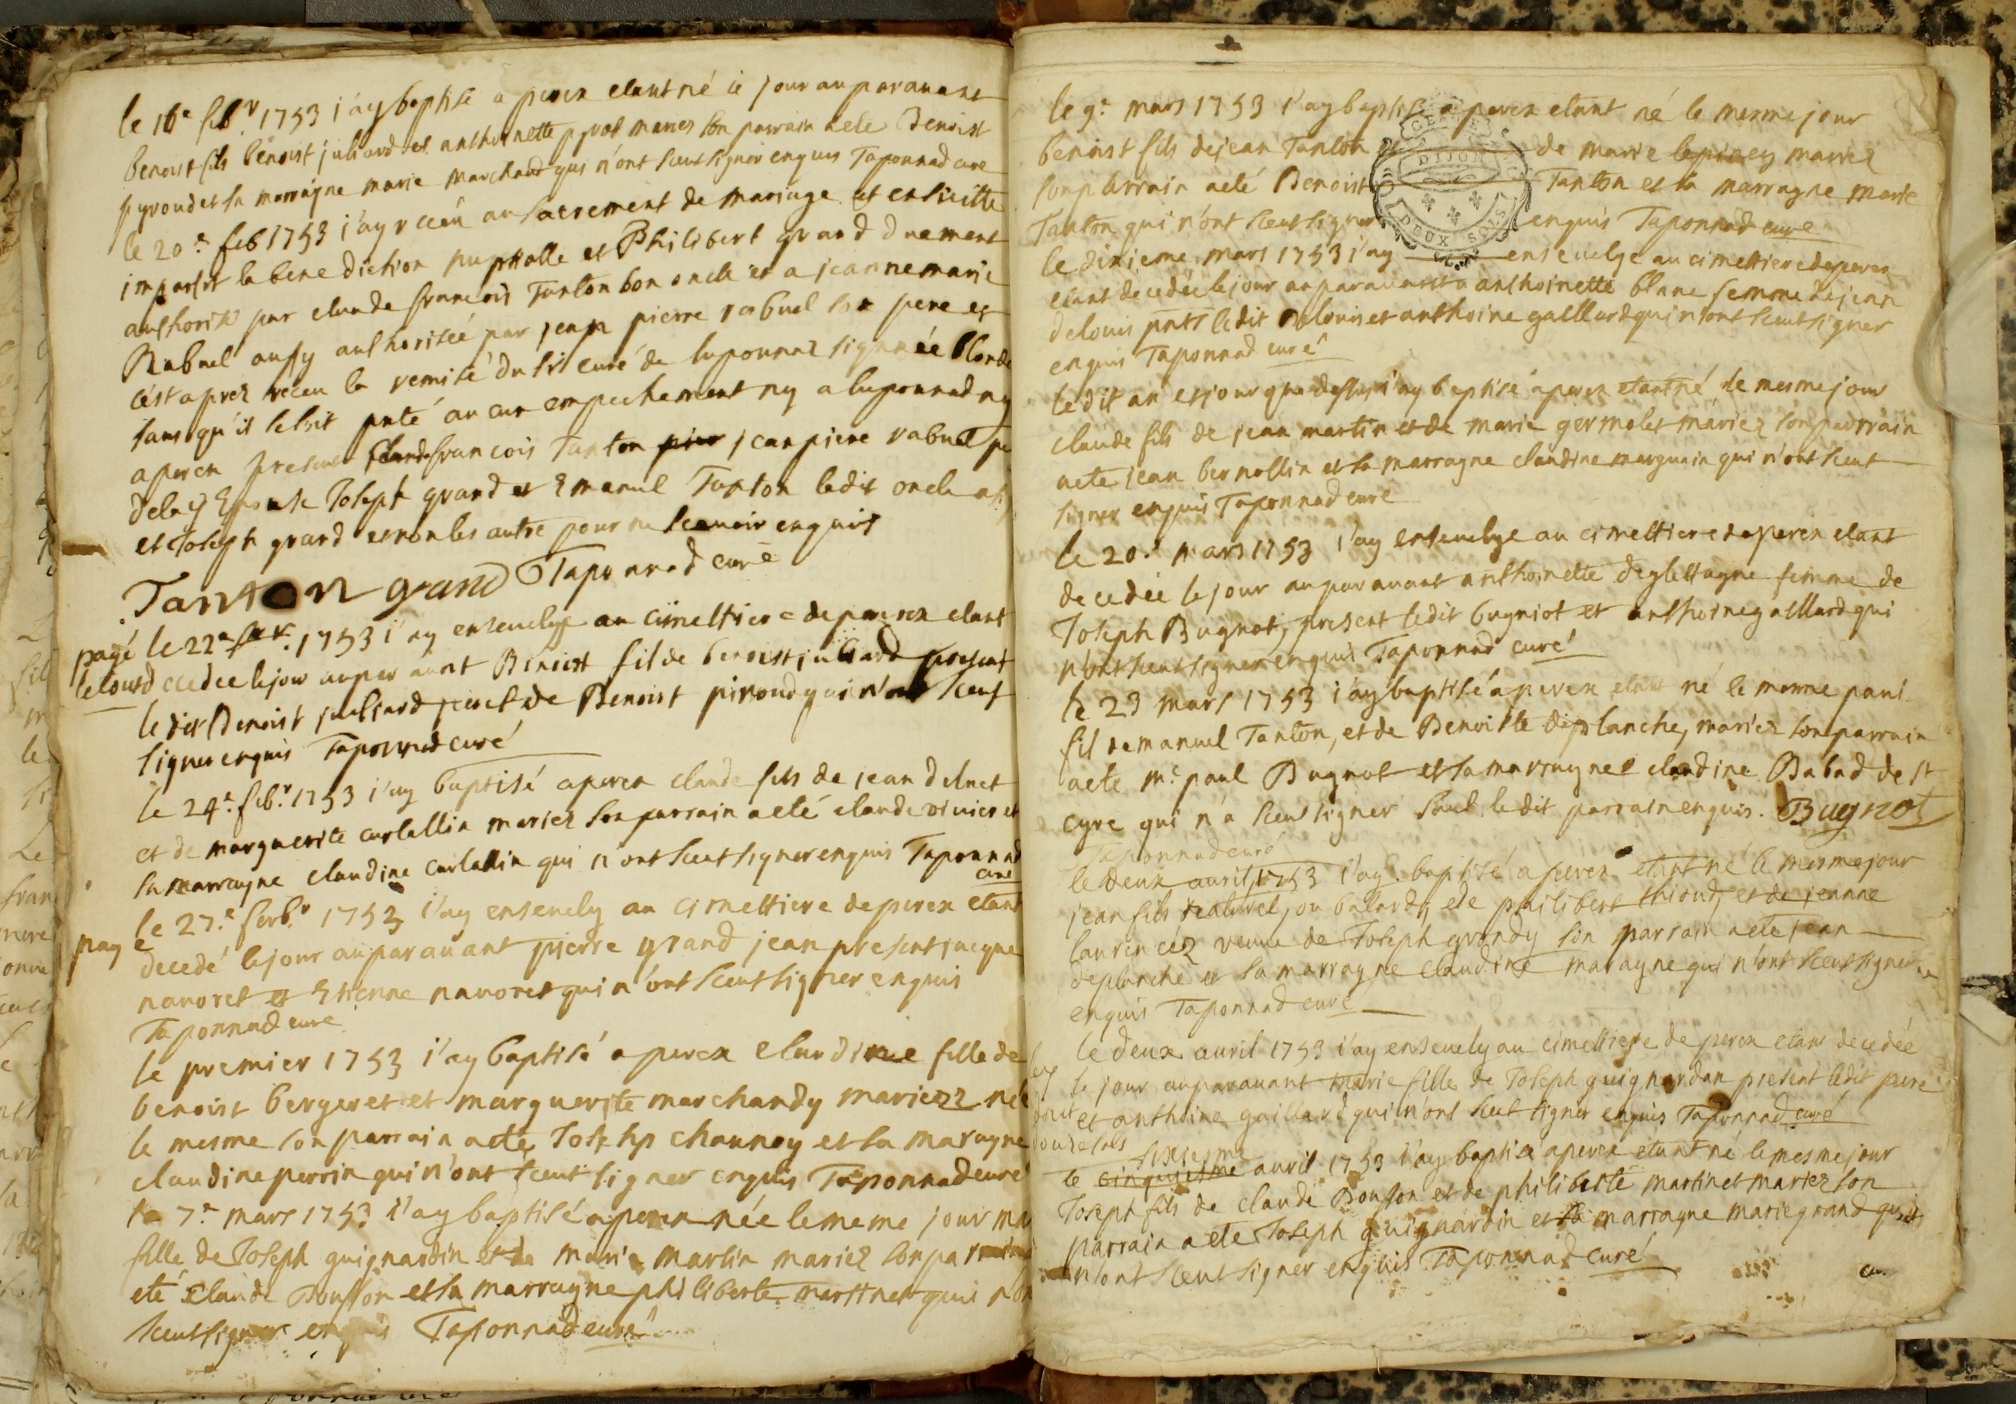 le 16e febvr 1753 i'ay baptisé a perex etant né le jour auparavant
benoist fils benoist juliard et anthoinette pyrod mariez son parrain a ete Benoist
pyroud et sa marragne marie marchand qui n'ont sceut signer enquis Taponnad curé
le 20e feb 1753 i'ay receu au sacrement de mariage et en suitte
imparti la benediction nuptialle et Philibert grand duement
authorisé par claude francois Tanton son oncle et a jeanne marie
Rabuel aussy authorisée par jean pierre rabuel son pere et
c'est aprez receu la remise du sr curé de luponnaz signée
sans qu'il se soit pnté aucun empechement ny a luponnad ny
a perex presents claude francois Tanton jean piere rabuel
Joseph grand et Emanuel Tanton ledit oncle
et Joseph grand et non les autre pour ne scavoir enquis
Tanton grand Taponnad curé
payé le 22e 1753 i'ay ensevely au cimettiere de perex etant
decedee le jour auparavant Benoist fil de benoist juliard present
ledit Benoist juliard et de Benoist piroud qui n'ont sceut
signer enquis Taponnad curé
le 24e feb.r 1753 i'ay baptisé a perex claude fils de jean delnet
et de marguerite curtallin mariez son parrain a eté claude vivier et
sa marragne claudine curtallin qui n'ont sceut signer enquis Taponnad
curé
le 27e 1753 i'ay ensevely au cimettiere de perex etant
payé decedé le jour auparavant pierre grand jean present jacque
navoret et Etienne navoret qui n'ont sceut signer enquis
Taponnad curé
le premier 1753 i'ay baptisé a perex claudine fille de
benoist bergeret et marguerite marchandy mariezz né
le mesme son parrain a ete Joseph channay et sa maragne
claudine perrin qui n'ont sceut signer enquis Taponnad curé
le 7e mars 1753 i'ay baptisé a perex née le meme jour
fille de Joseph guignardin et de marie martin mariez son parrain
eté Claude Bouffon et sa marragne philiberte martinet qui
sceut signer enquis Taponnad curé
le 9e mars 1753 i'ay baptisé a perex etant né le mesme jour
benoist fils de jean Tanton et de marie mariez
son parrain a eté Benoist Tanton et sa marragne marie
Tanton qui n'ont sceut signer enquis Taponnad curé
GE DIJON
DEUX SOLS
le dixieme mars 1753 i'ay ensevelye au cimettiere de perex
etant decedée le jour auparavant anthoinette blanc femme de jean
delouis pnts ledit delouis et anthoine gaillard qui n'ont sceut signer
enquis Taponnad curé
ledit an et jour que dessus i'ay baptisé a perex etant né le mesme jour
claude fils de jean martin et de marie germolet mariez son parrain
a ete jean bernollin et sa marragne claudine marguain qui n'ont sceut
signer enquis Taponnad curé
le 20e mars 1753 i'ay ensevelye au cimettiere de perex etant
decedée le jour auparavant anthoinette femme de
Joseph Bugnot, present ledit bugniot et anthoine gaillard qui
n'ont sceut signer enquis Taponnad curé
le 23 mars 1753 i'ay baptisé a perex etant né le mesme paul
fil demanuel Tanton, et de Benoitte deplanche, mariez son parrain
a ete me paul Bugnot et sa marragnee claudine Babad de st
cyre qui n'a sceut signer sauf ledit parrain enquis. Bugnot
Taponnad curé
le deux avril 1753 i'ay baptisé a perex etant né le mesme jour
jean fils naturel, ou batard, de philibert thioud, et de jeanne
laurencez veuve de Joseph grandy son parrain a ete jean
deplanche et sa marragne claudine maragne qui n'ont sceut signer
enquis Taponnad curé
le deux avril 1753 i'ay ensevely au cimettiere de perex etant decedée
le jour auparavant marie fille de Joseph guignardan present ledit pere
et anthoine gaillard qui n'ont sceut signer enquis Taponnad curé
sixiesme
le cinquiesme avril 1753 i'ay baptisé a perex etant né le mesme jour
Joseph fils de claude Bouffon et de philiberte martinet mariez son
parrain a ete Joseph guignardin et sa marragne marie grand qui
n'ont sceut signer enquis Taponnad curé